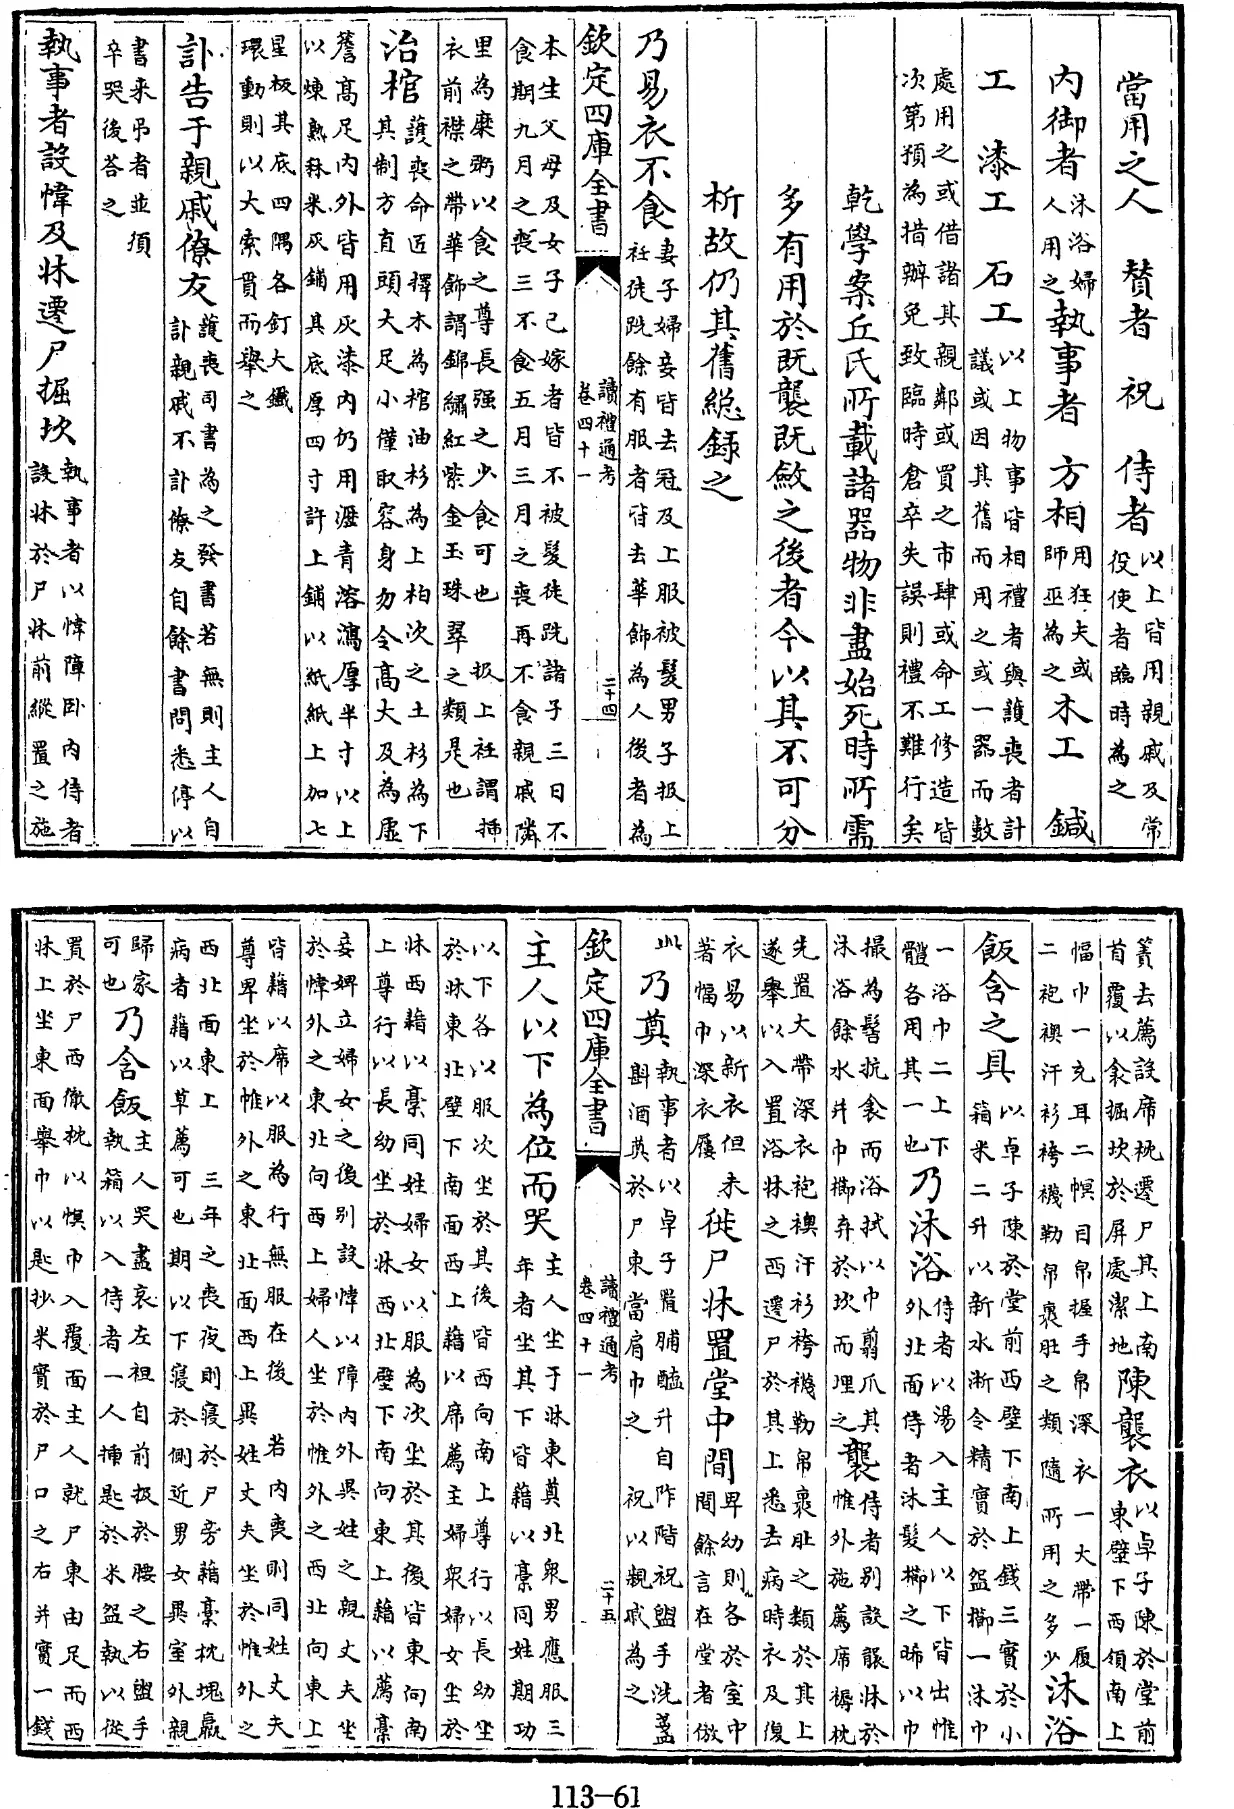 當用之人　贊者　祝　侍者以上皆用親戚及常役使者臨時為之
內御者沐浴婦人用之執事者　方相用狂夫或師巫為之木工　鍼
工　漆工　石工以上物事皆相禮者與護喪者計議或因其舊而用之或一器而數
處用之或借諸其親鄰或買之市肆或命工修造皆次第預為措辦免致臨時倉卒失誤則禮不難行矣
乾學案丘氏所載諸器物非盡始死時所需
多有用於既襲既斂之後者今以其不可分
析故仍其舊總錄之
乃易衣不食妻子婦妾皆去冠及上服被髮男子扱上衽徒跣餘有服者皆去華飾為人後者為
欽定四庫全書
讀禮通考
卷四十一
二十四
本生父母及女子已嫁者皆不被髮徒跣諸子三日不食期九月之喪三不食五月三月之喪再不食親戚隣
里為糜粥以食之尊長强之少食可也　扱上衽謂插衣前襟之帶華飾謂錦繡紅紫金玉珠翠之類是也
治棺護喪命匠擇木為棺油杉為上柏次之土杉為下其制方直頭大足小僅取容身勿令高大及為虛
簷高足內外皆用灰漆內仍用瀝青溶瀉厚半寸以上以煉熟秫米灰鋪其底厚四寸許上鋪以紙紙上加七
星板其底四隅各釘大鐵環動則以大索貫而舉之
訃告于親戚僚友護喪司書為之發書若無則主人自訃親戚不訃僚友自餘書問悉停以
書來弔者並須卒哭後荅之
執事者設幃及牀遷尸掘坎執事者以幃障卧內侍者設牀於尸牀前縱置之施
簀去薦設席枕遷尸其上南首覆以衾掘坎於屏處潔地陳襲衣以卓子陳於堂前東壁下西領南上
幅巾一充耳二幎目帛握手帛深衣一大帶一履二袍襖汗衫袴襪勒帛裹肚之類隨所用之多少沐浴
飯含之具以卓子陳於堂前西壁下南上錢三實於小箱米二升以新水淅令精實於盌櫛一沐巾
一浴巾二上下體各用其一也乃沐浴侍者以湯入主人以下皆出帷外北面侍者沐髮櫛之晞以巾
撮為髻抗衾而浴拭以巾翦爪其沐浴餘水并巾櫛弃於坎而埋之襲侍者別設襲牀於帷外施薦席褥枕
先置大帶深衣袍襖汗衫袴襪勒帛裹肚之類於其上遂舉以入置浴牀之西遷尸於其上悉去病時衣及復
衣易以新衣但未著幅巾深衣履徙尸牀置堂中間卑幼則各於室中間餘言在堂者倣
此乃奠執事者以卓子置脯醢升自阼階祝盥手洗盞斟酒奠於尸東當肩巾之　祝以親戚為之
欽定四庫全書
讀禮通考
卷四十一
二十五
主人以下為位而哭主人坐于牀東奠北衆男應服三年者坐其下皆藉以藁同姓期功
以下各以服次坐於其後皆西向南上尊行以長幼坐於牀東北壁下南面西上藉以席薦主婦衆婦女坐於
牀西藉以藁同姓婦女以服為次坐於其後皆東向南上尊行以長幼坐於牀西北壁下南向東上藉以薦藁
妾婢立婦女之後別設幃以障內外異姓之親丈夫坐於幃外之東北向西上婦人坐於帷外之西北向東上
皆藉以席以服為行無服在後　若內喪則同姓丈夫尊卑坐於帷外之東北面西上異姓丈夫坐於帷外之
西北面東上　三年之喪夜則寢於尸旁藉藁枕塊羸病者藉以草薦可也期以下寢於側近男女異室外親
歸家可也乃含飯主人哭盡哀左袒自前扱於腰之右盥手執箱以入侍者一人插匙於米盌執以從
置於尸西徹枕以幎巾入覆面主人就尸東由足而西牀上坐東面舉巾以匙抄米實於尸口之右并實一錢
113-61